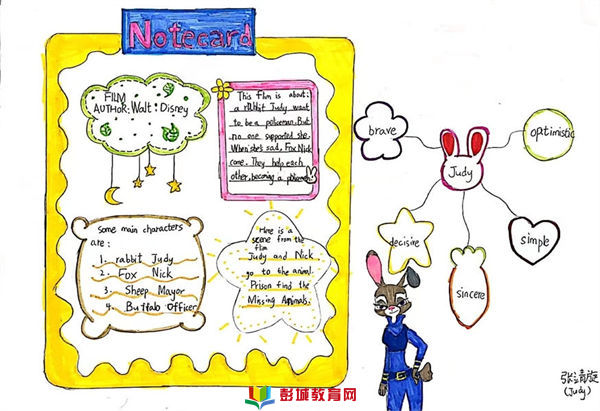 Notecard
FILM
AUTHOR: Walt: Disney
This film is about:
a rabbit Judy want
to be a policeman. But
no one supported she.
When she's sad, Fox Nick
come. They help each
other, becoming a policeman
Some main characters
are:
1. rabbit Judy
2. Fox Nick
3. Sheep Mayor
4. Buffalo Officer
Here is a
scene from the
film
Judy and Nick
go to the animal
Prison find the
Missing Animals.
brave
optimistic
Judy
decisive
simple
sincere
张靖旋
(Judy)
彭城教育网